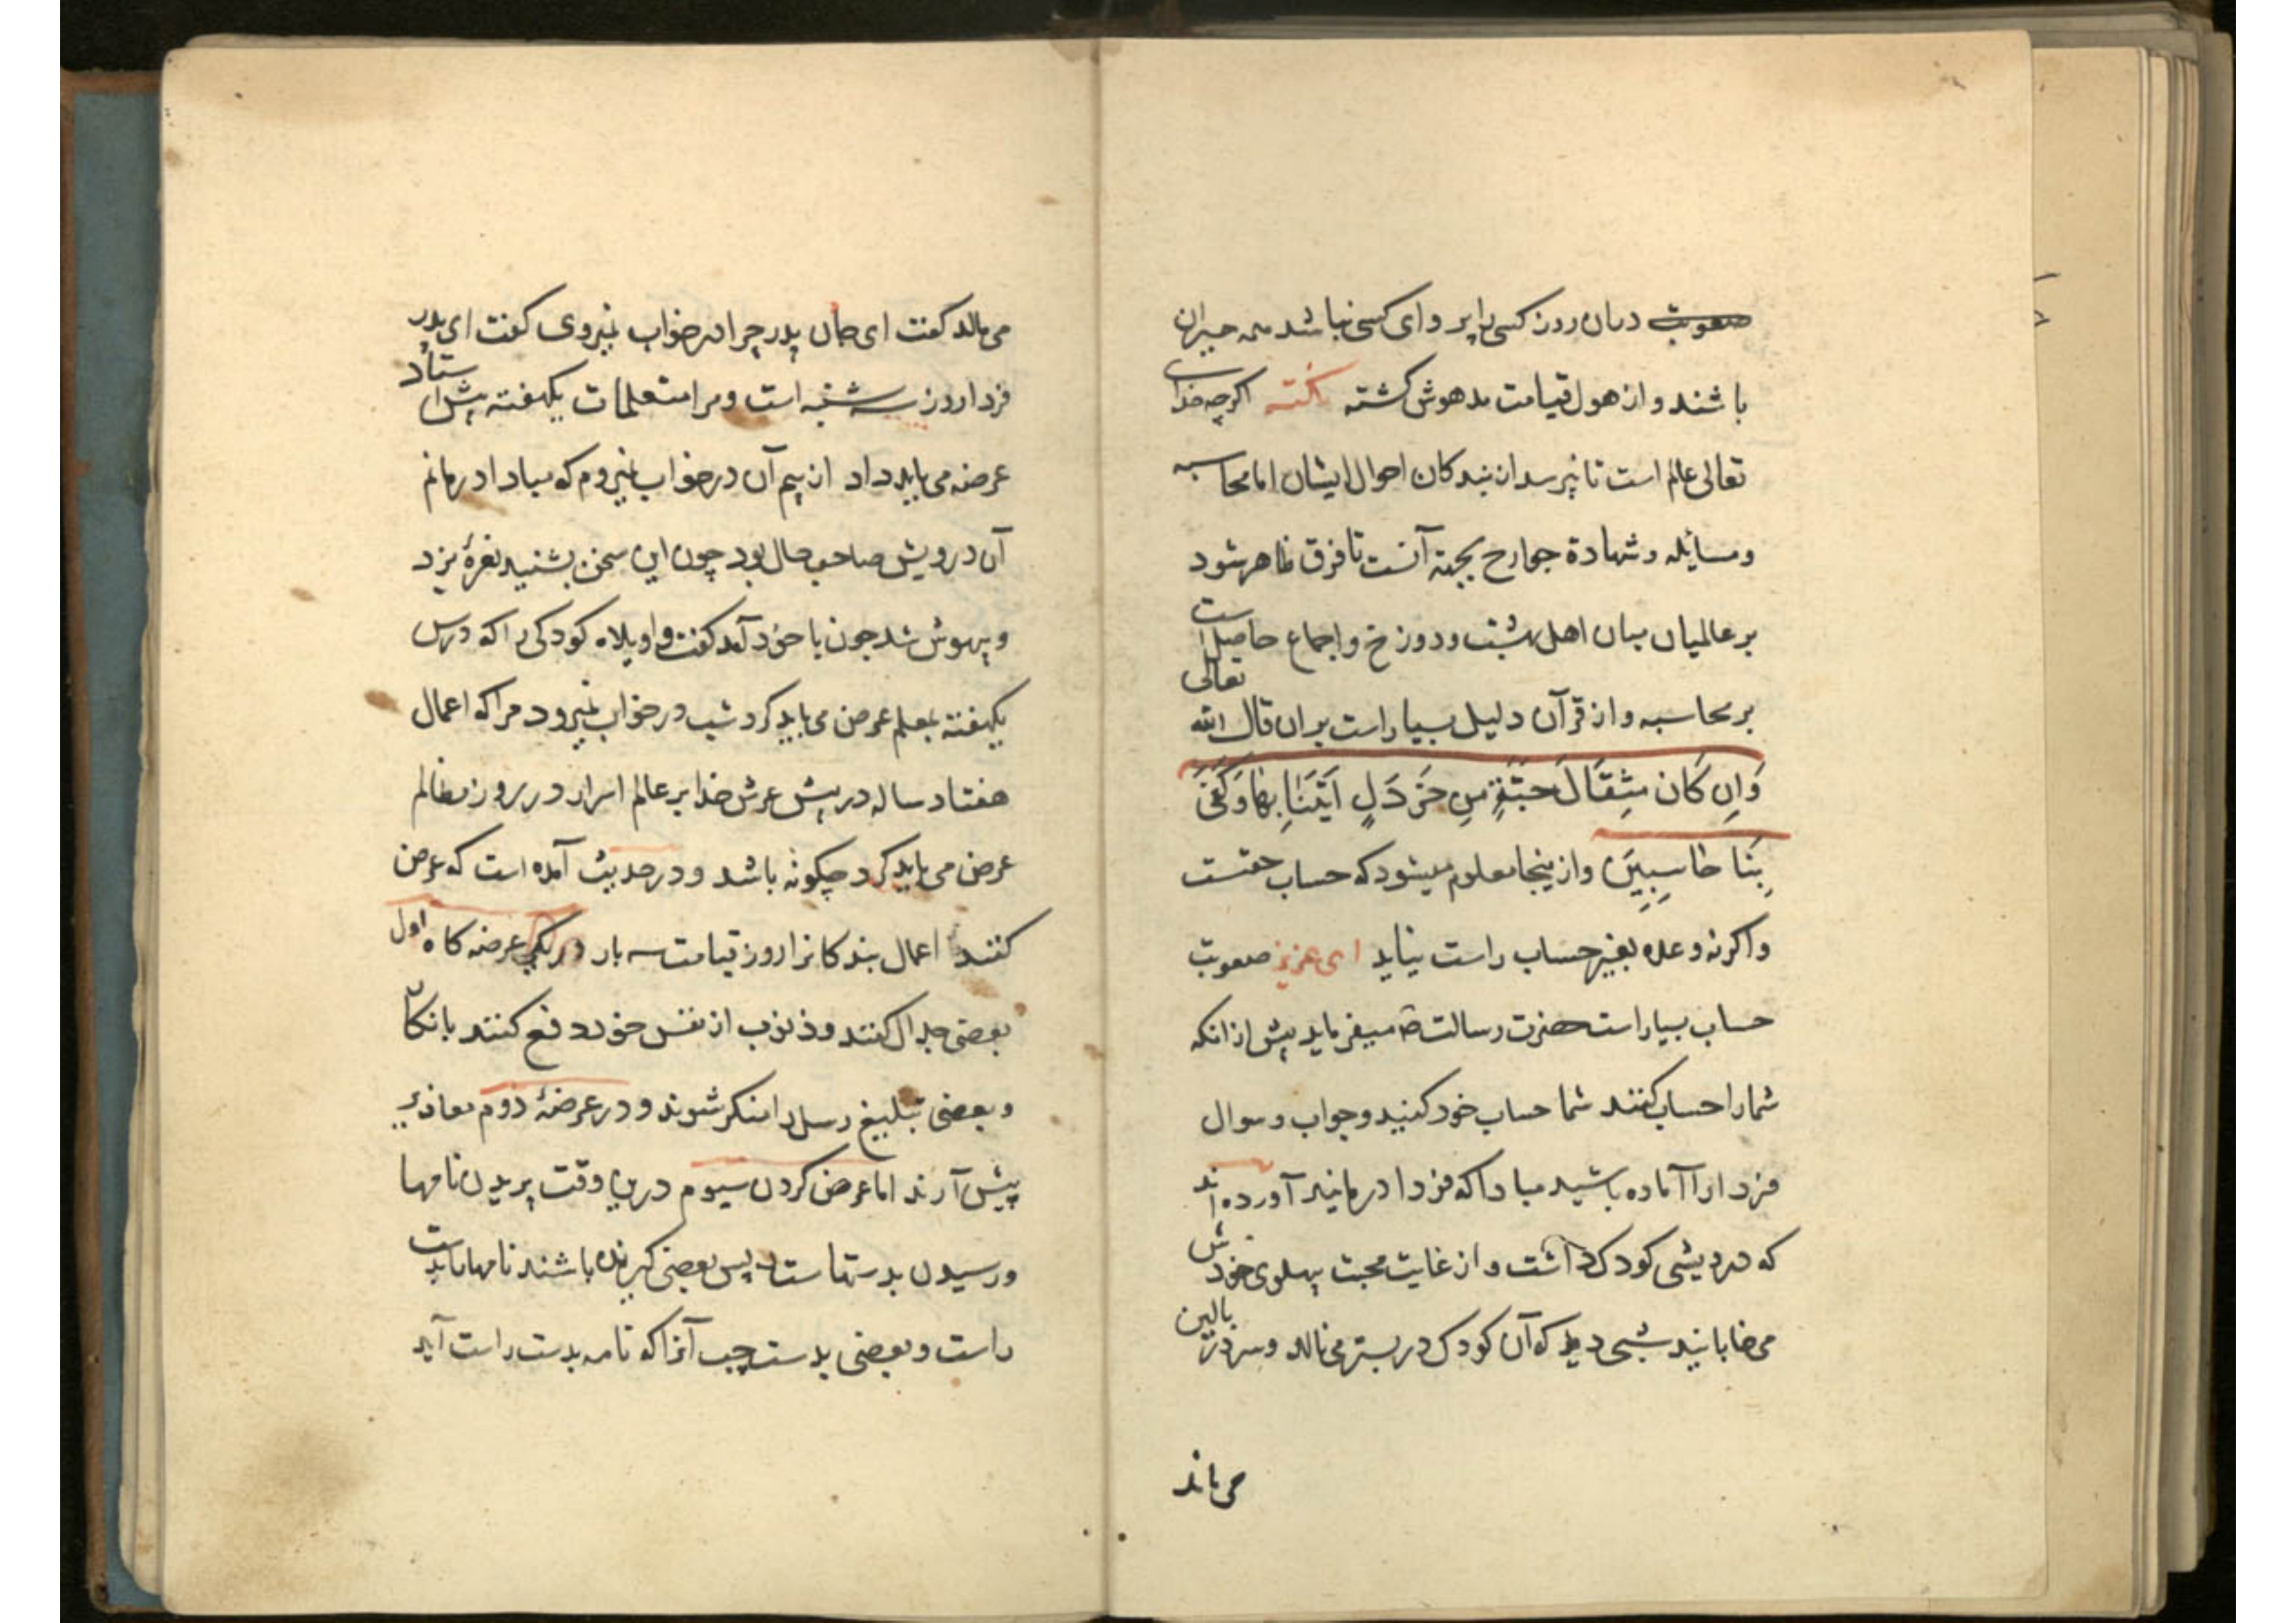 صعوبت دران روز کسی را پروای کسی نباشد همه حیران
باشند و از هول قیامت مدهوش کشته نکته اکرچه خدای
تعالی عالم است تا نپرسد از بندکان احوال ایشان اما محاسبه
ومسایله و شهادة جوارح بجهة آنست تا فرق ظاهر شود
بر عالمیان میان اهل بهشت و دوزخ و اجماع حاصل است
بر محاسبه و از قرآن دلیل بسیار است بران قال الله تعالی
وَاِن کَان مِثقَالَ حَبَّةٍ مِن خَردَلٍ اَتَینَا بِهَا وَکَفَی
بِنَا حَاسِبِینَ وازینجا معلوم میشود که حساب حقست
واکرنه وعده بغیر حساب راست نیاید ای عزیز صعوبت
حساب بسیار است حضرت رسالت ص میفرماید پیش ازانکه
شمارا حساب کنند شما حساب خود کنید و جواب و سوال
فردا را آماده باشید مبادا که فردا درمانید آورده اند
که درویشی کودک داشت و از غایت محبت پهلوی خودش
می خابانید شبی دید که آن کودک در بستر می نالد و سر در بالین
می ماند
می مالد کفت ای جان پدر چرا در خواب نمیروی کفت ای پدر
فردا روز سه شنبه است و مرا متعلمات یکهفته پیش استاد
عرضه می باید داد از بیم آن در خواب نمیروم که مبادا درمانم
آن درویش صاحب حال بود چون این سخن بشنید نعرهٔ بزد
و بیهوش شد چون با خود آمد کفت واویلاه کودکی را که درس
یکهفته بمعلم عرض می باید کرد شب در خواب نمیرود مرا که اعمال
هفتاد ساله در پیش عرش خدا بر عالم اسرار در روز مظالم
عرض می باید کرد چکونه باشد و در حدیث آمده است که عرض
کنند اعمال بندکانرا روز قیامت سه بار در یکی عرضه کاه اول
بعضی جدال کنند و ذنوب از نفس خود دفع کنند بانکار
و بعضی تبلیغ رسل را منکر شوند و در عرضهٔ دوم معاذیر
پیش آرند اما عرض کردن سیوم درین وقت پریدن نامها
ورسیدن بدستهاست پس بعضی کیرنده باشند نامها بدست
راست و بعضی بدست چپ آنرا که نامه بدست راست آید